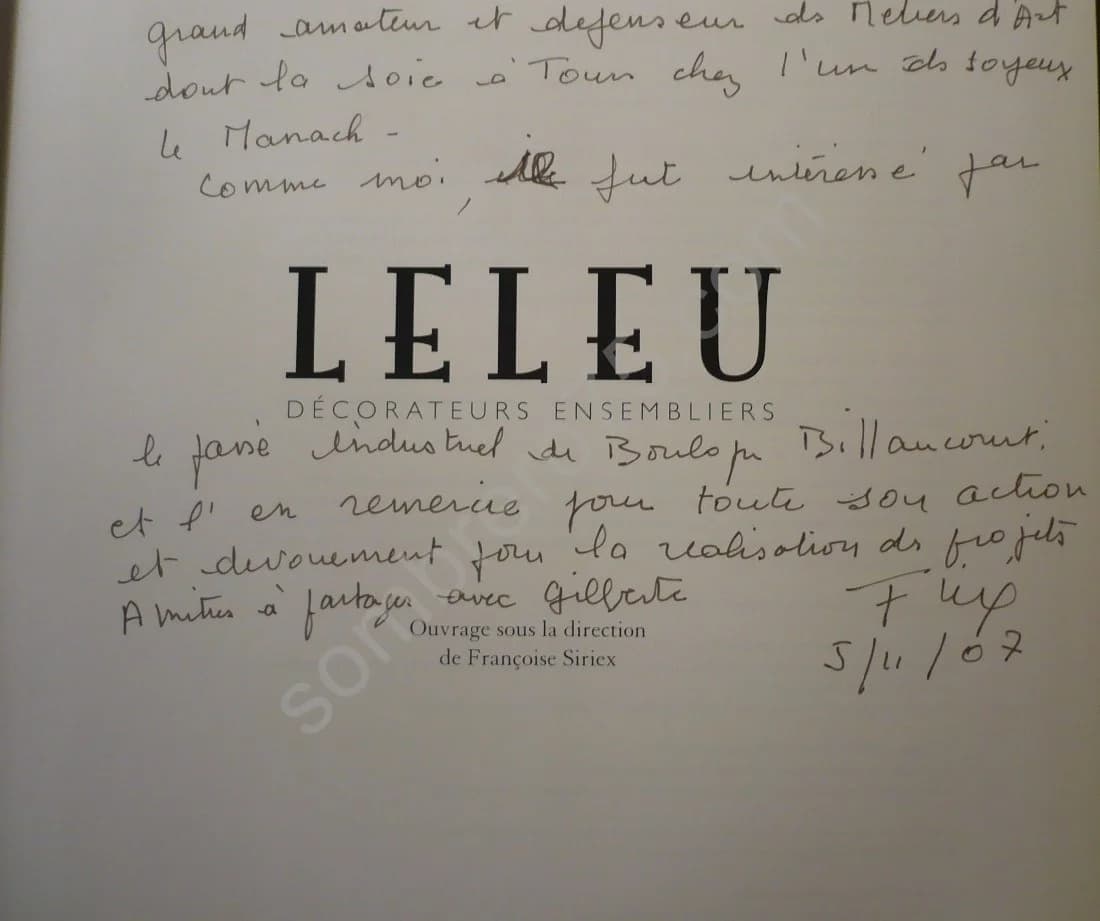 grand amateur et defenseur ds Metiers d'Art
dont la soie à Tours chez l'un ds soyeux
le Manach -
Comme moi, il fut intéressé par
LELEU
DÉCORATEURS ENSEMBLIERS
le passé industriel de Boulogne Billancourt.
et l'en remercie pour toute son action
et devouement pour la realisation de projets
Amitiés à partager avec Gilberte
Ouvrage sous la direction
de Françoise Siriex
5/11/07